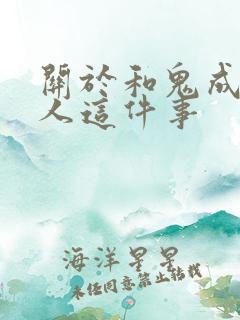 關於和鬼成
人這件事
海洋星星
未經同意禁止轉載